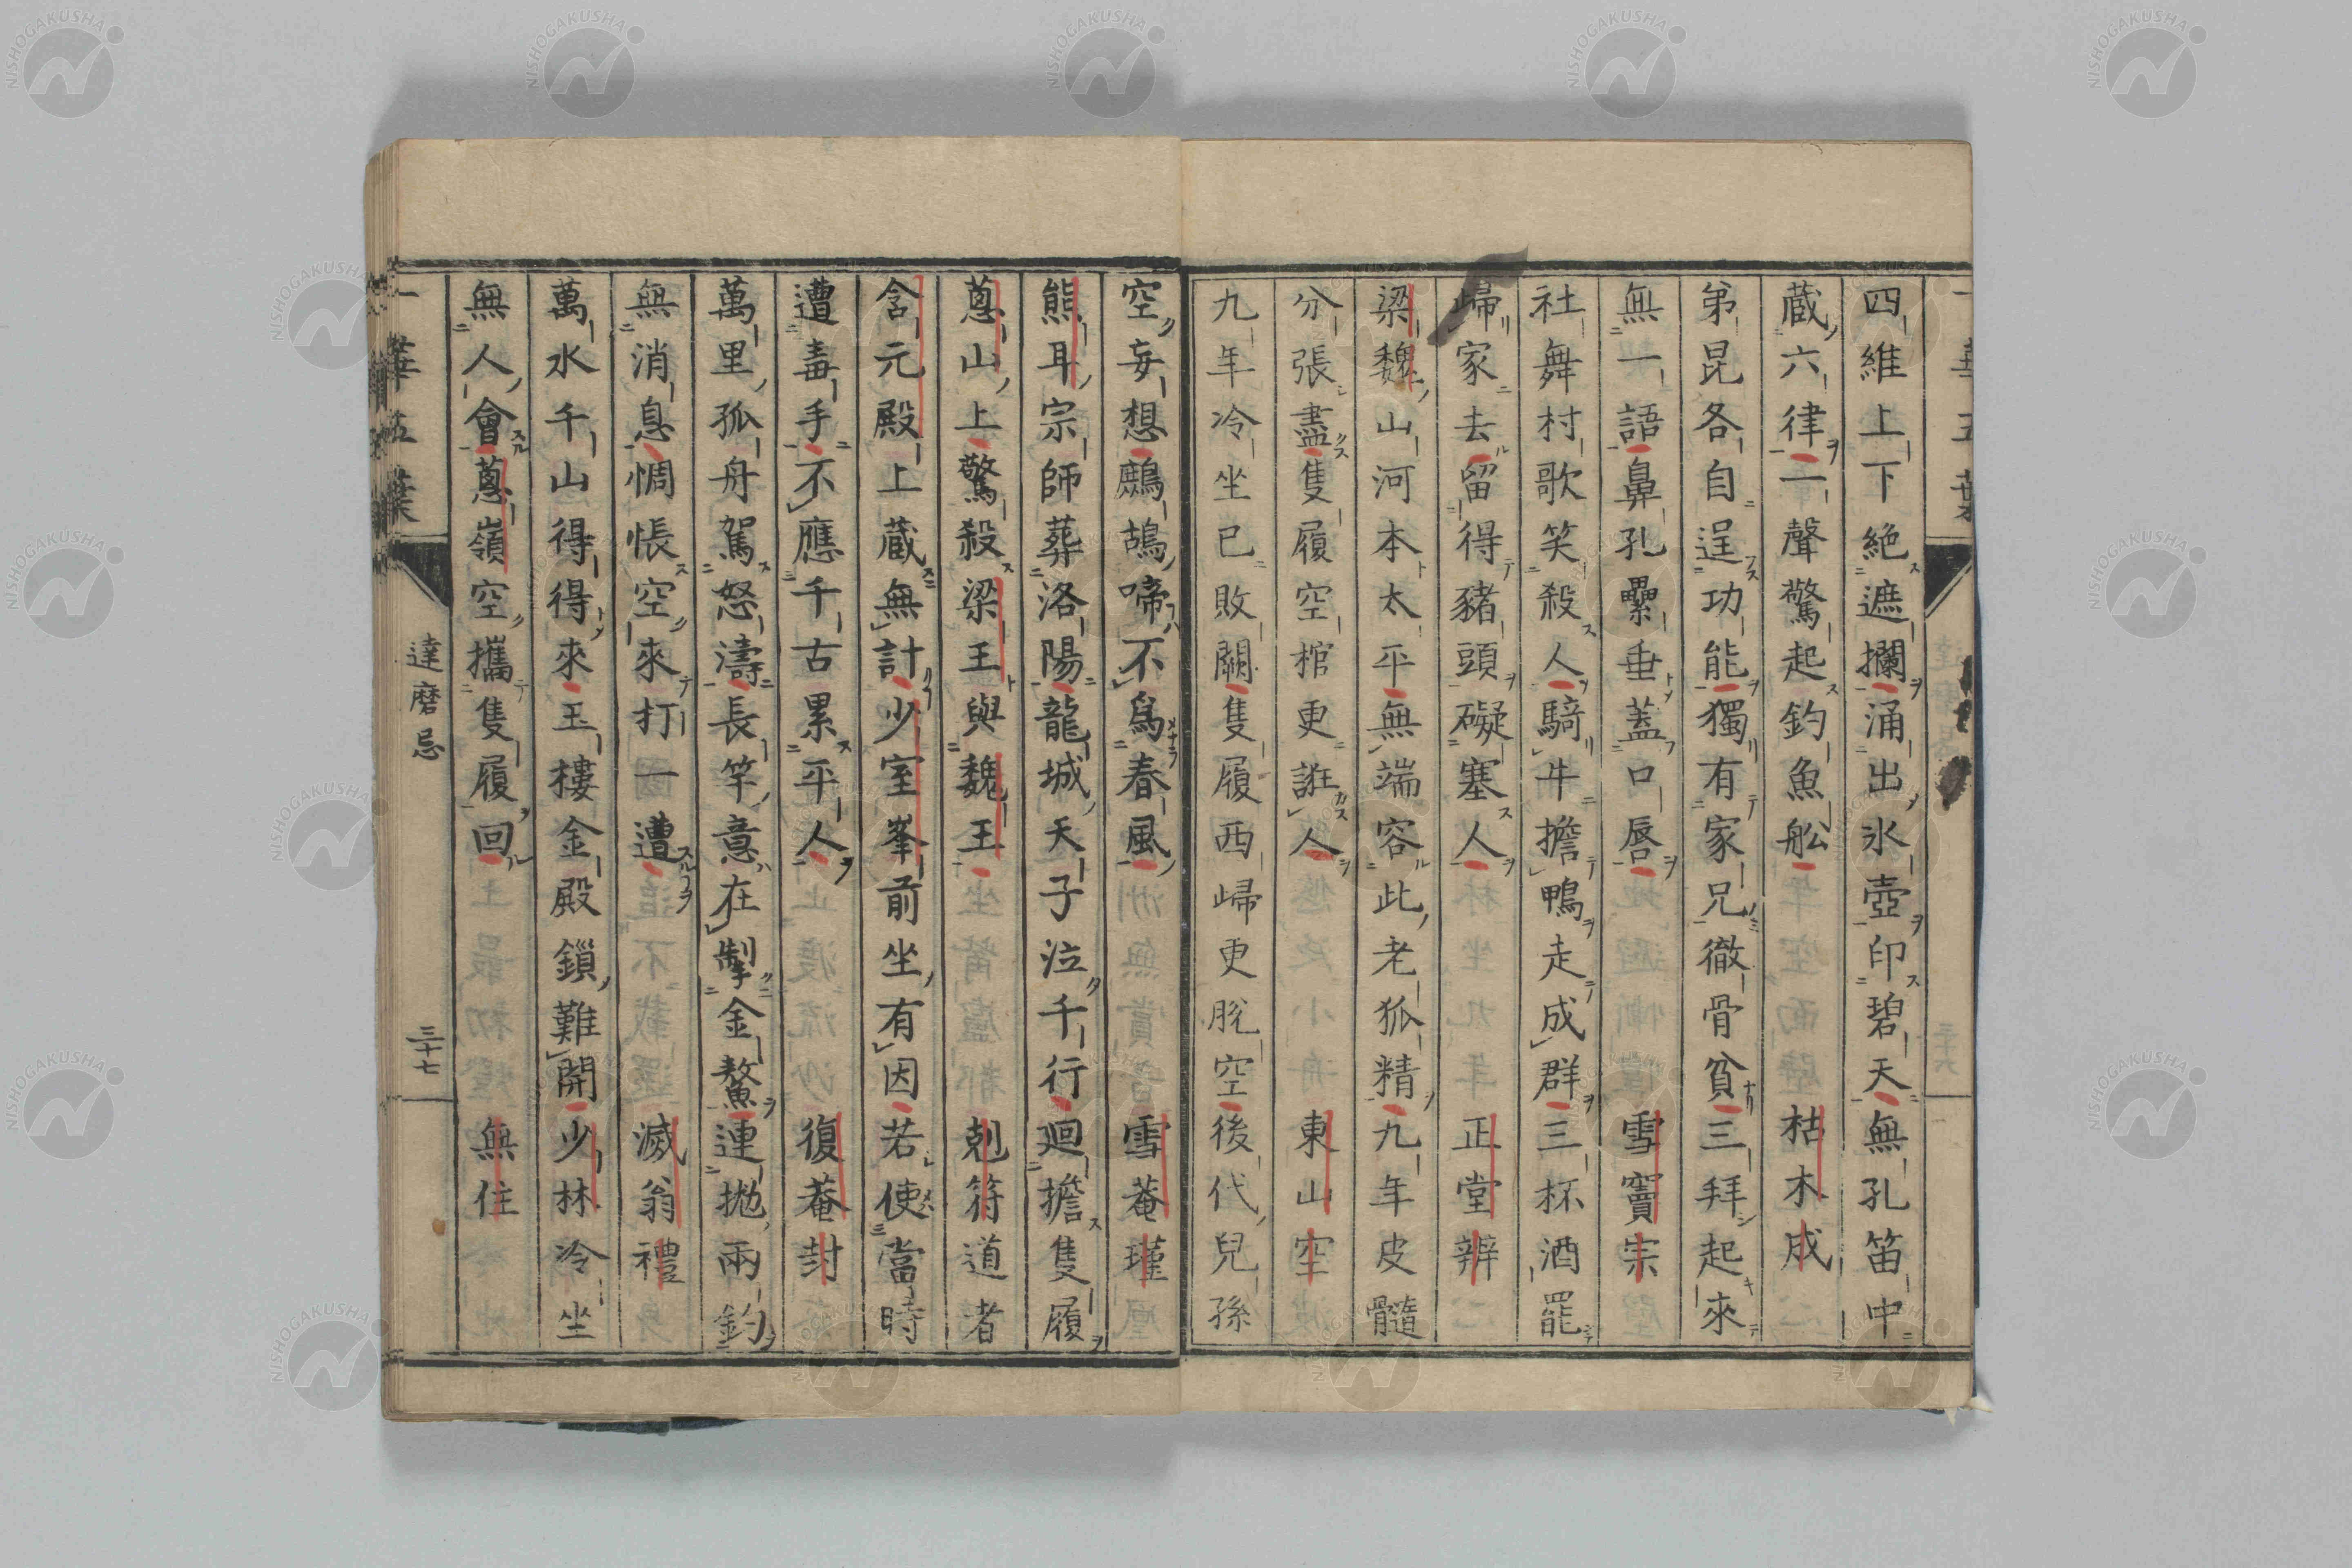 四維上下絶遮攔涌出氷壺印碧天無孔笛中
蔵六律一聲驚起釣魚舩 枯木成
弟昆各自逞功能獨有家兄徹骨貧三拜起來
無一語鼻孔纍垂蓋口唇 雪竇宗
社舞村歌笑殺人騎牛擔鴨走成群三杯酒罷
歸家去留得豬頭礙塞人 正堂辨
梁魏山河本太平無端容此老狐精九年皮髓
分張盡隻履空棺更誑人 東山空
九年冷坐已敗闕隻履西歸更脱空後代兒孫
空妄想鷓鴣啼不為春風 雪菴瑾
熊耳宗師葬洛陽龍城天子泣千行迴擔隻履
蔥山上驚殺梁王與魏王 剋符道者
含元殿上蔵無計少室峯前坐有因若使當時
遭毒手不應千古累平人 復菴封
萬里孤舟駕怒濤長竿意在掣金鰲連拋兩釣
無消息惆悵空來打一遭 滅翁禮
萬水千山得得來玉樓金殿鎖難開少林冷坐
無人會蔥嶺空攜隻履回 無住
一華五葉
達磨忌
三十七